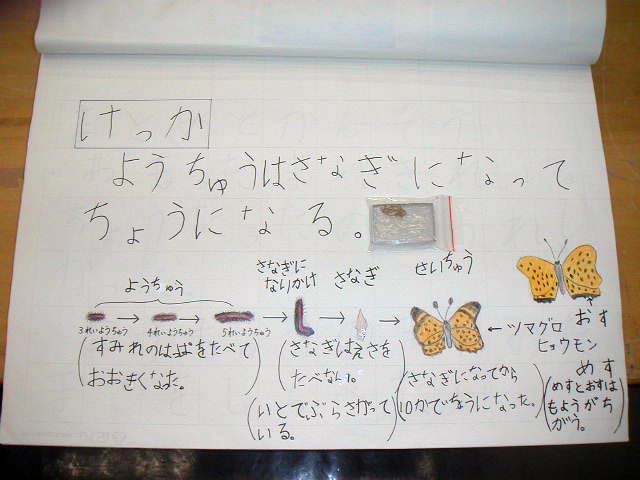 けっか
ようちゅうはさなぎになって
ちょうになる。
ようちゅう
さなぎに
なりかけ
さなぎ
せいちゅう
3れいようちゅう
4れいようちゅう
5れいようちゅう
(すみれのはっぱをたべて
おおきくなった。)
(さなぎはえさを
たべない。)
(いとでぶらさがって
いる。)
(さなぎになってから
10かでちょうになった。)
おす
←ツマグロ
ヒョウモン
めす
(めすとおすは
もようがち
がう。)